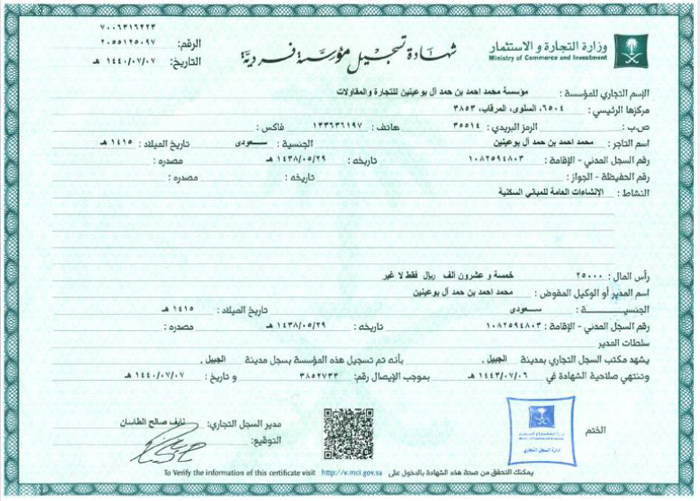 وزارة التجارة و الاستثمار
Ministry of Commerce and Investment
شهادة تسجيل مؤسسة فردية
٧٠٠٦٣١٦٢٢٣
الرقم: ٢٠٥٥١٢٥٠٩٧
التاريخ: ١٤٤٠/٠٧/٠٧ هـ
الإسم التجاري للمؤسسة : مؤسسة محمد احمد بن حمد آل بوعينين للتجارة والمقاولات
مركزها الرئيسي : ٦٥٠٤، السلوى، المرقاب، ٣٨٥٣
ص.ب : الرمز البريدي : ٣٥٥١٤ هاتف : ١٣٣٦٣٦١٩٧ فاكس :
اسم التاجر : محمد احمد بن حمد آل بوعينين الجنسية : سعودى تاريخ الميلاد : ١٤١٥ هـ
رقم السجل المدني - الإقامة : ١٠٨٢٥٩٤٨٠٣ تاريخه : ١٤٣٨/٠٥/٢٩ هـ مصدره :
رقم الحفيظة - الجواز : تاريخه : مصدره :
النشاط : الإنشاءات العامة للمباني السكنية
رأس المال : ٢٥٠٠٠ خمسة و عشرون الف ريال فقط لا غير
اسم المدير أو الوكيل المفوض : محمد احمد بن حمد آل بوعينين
الجنسيـــــة : سعودى تاريخ الميلاد : ١٤١٥
رقم السجل المدني - الإقامة : ١٠٨٢٥٩٤٨٠٣ تاريخه : ١٤٣٨/٠٥/٢٩ هـ مصدره :
سلطات المدير
يشهد مكتب السجل التجاري بمدينة الجبيل . بأنه تم تسجيل هذه المؤسسة بسجل مدينة الجبيل.
وتنتهي صلاحية الشهادة في ١٤٤٣/٠٧/٠٦ هـ بموجب الإيصال رقم: ٣٨٥٢٧٣٣ و تاريخ : ١٤٤٠/٠٧/٠٧ هـ
الختم
مدير السجل التجاري: نايف صالح الطاسان
التوقيع:
إدارة السجل التجاري
يمكنك التحقق من صحة هذه الشهادة بالدخول على
To Verify the information of this certificate visit http://v.mci.gov.sa